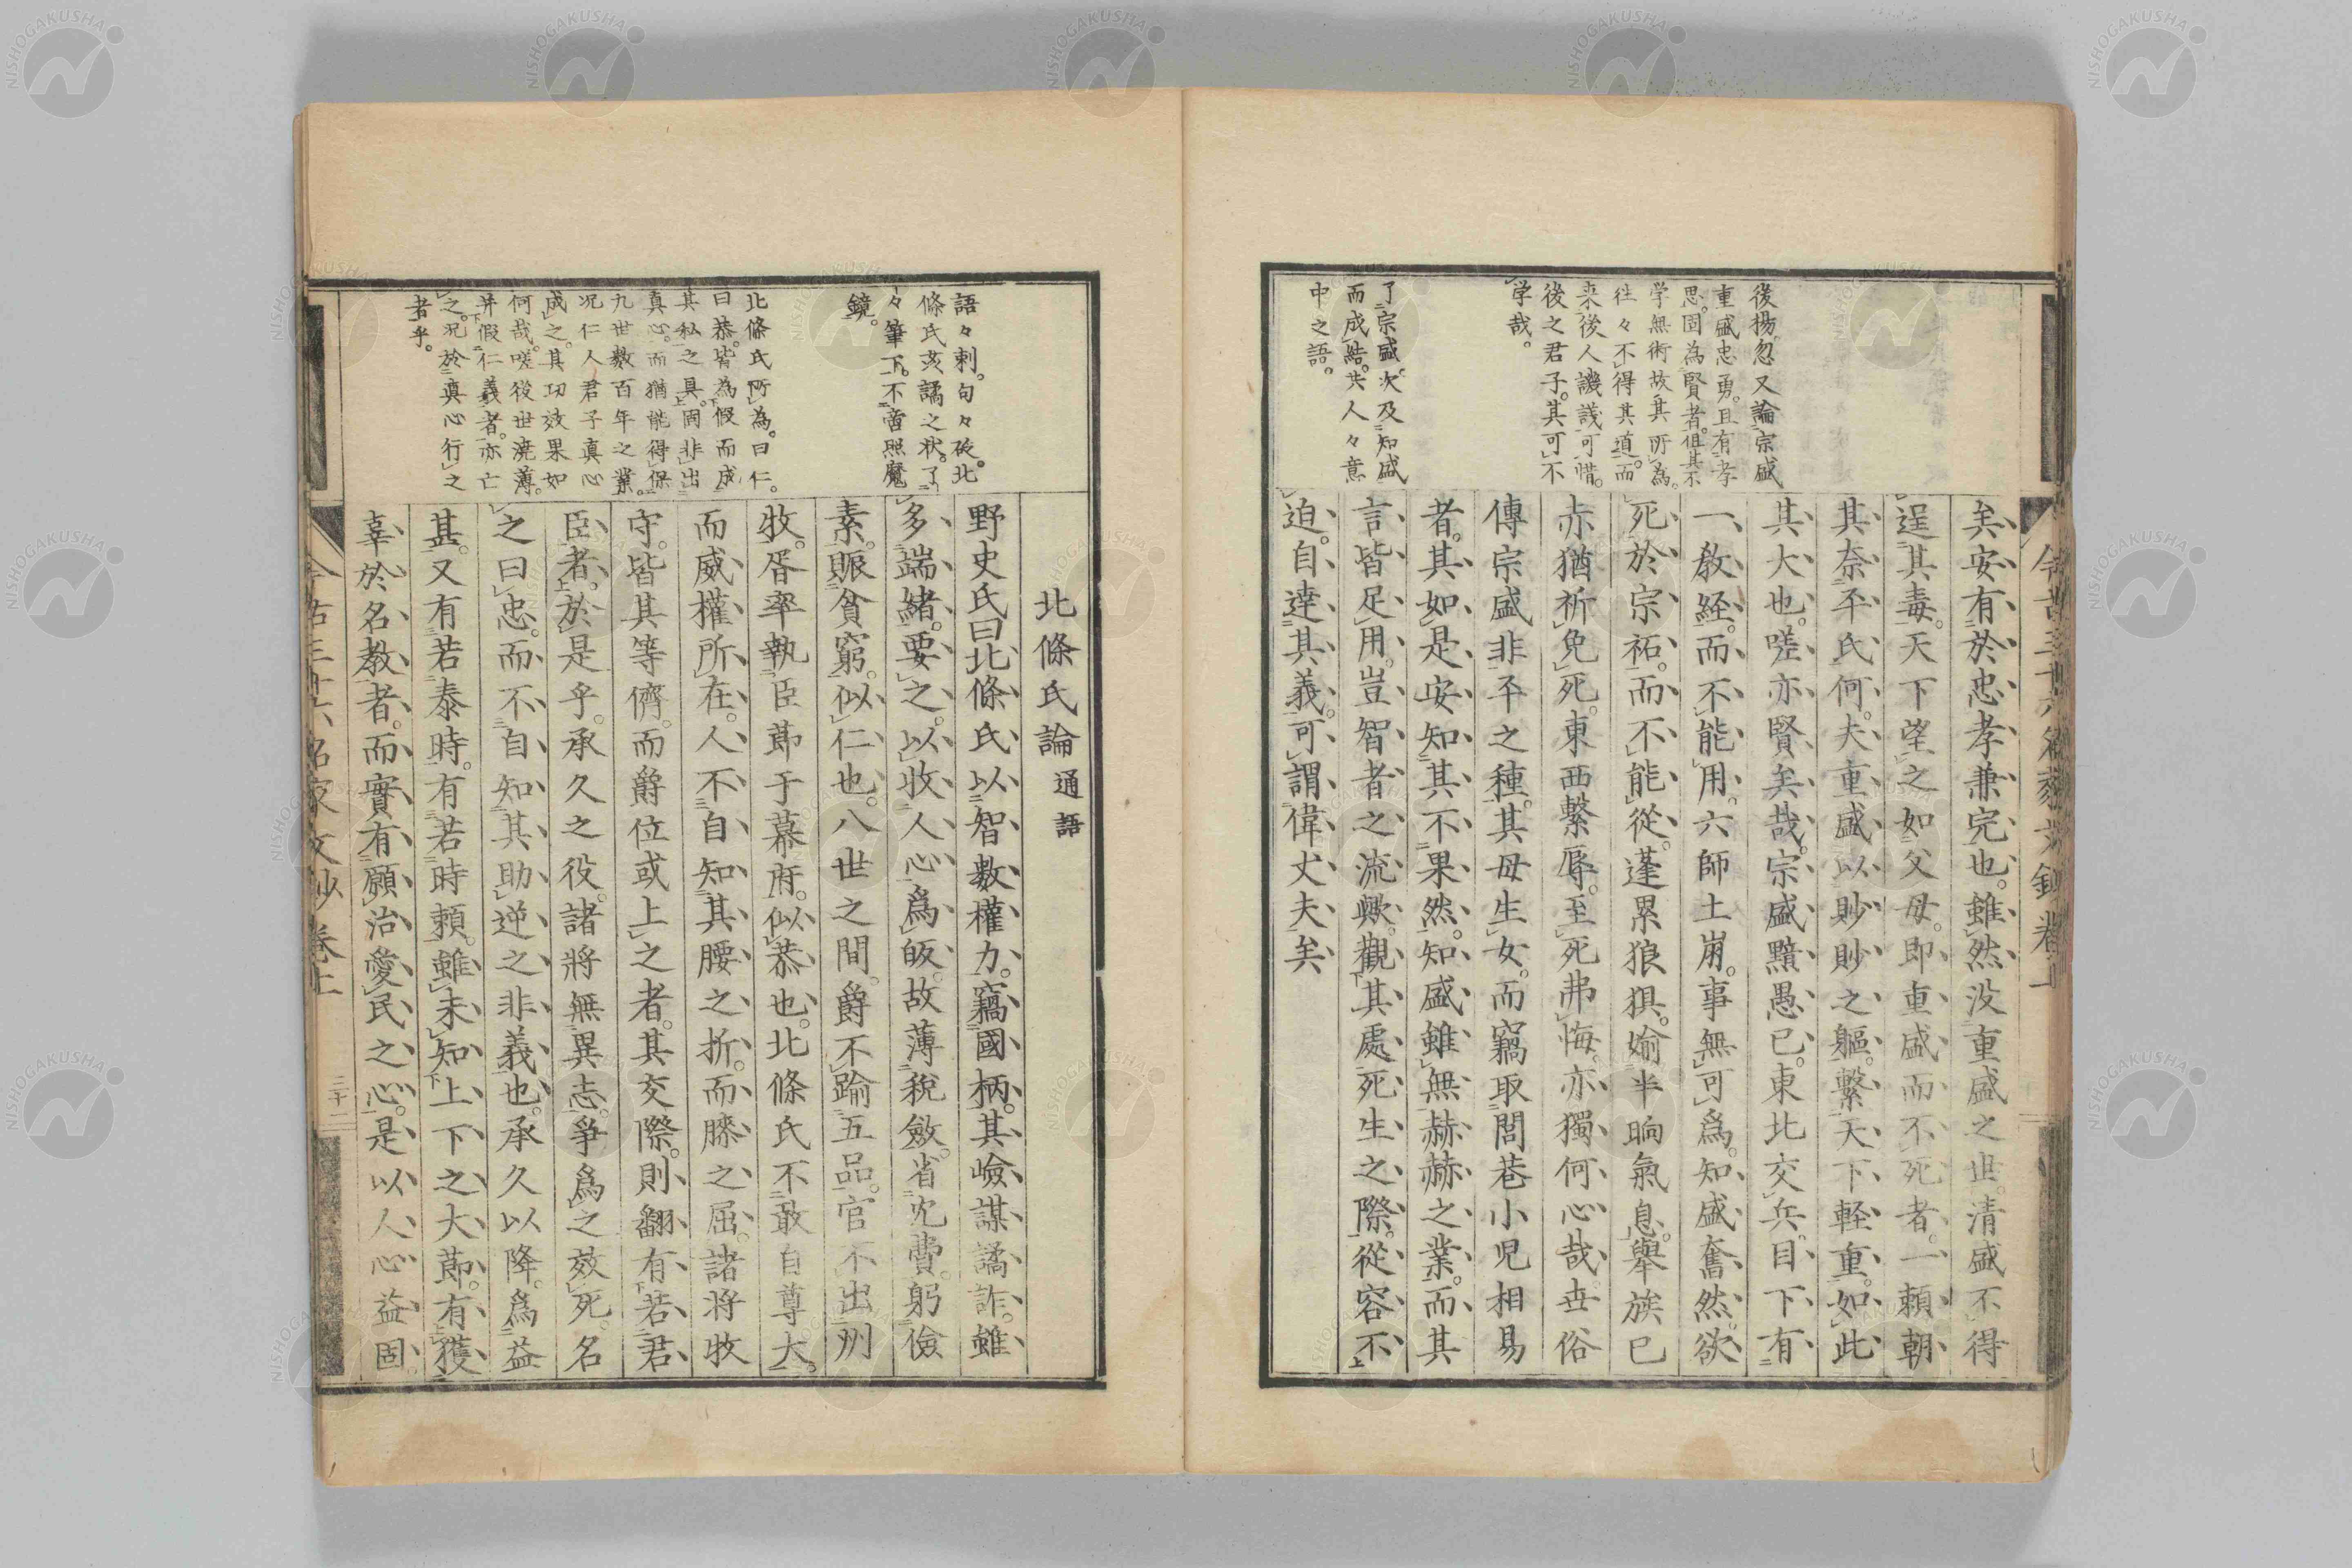 矣安有於忠孝兼完也。雖然没重盛之世。清盛不得
逞其毒。天下望之如父母。即重盛而不死者。一頼朝
其奈平氏何。夫重盛以眇眇之軀。繋天下輕重。如此
其大也。嗟亦賢矣哉。宗盛黯愚已。東北交兵。目下有
一敎經。而不能用。六師土崩。事無可爲。知盛奮然。欲
死於宗祏。而不能從。蓬累狼狽。婾半晌氣息。舉族已
赤猶祈免死。東西繋辱。至死弗悔。亦獨何心哉。世俗
傳宗盛非平之種。其母生女。而竊取閭巷小児相易
者。其如是安知其不果然。知盛雖無赫赫之業。而其
言皆足用。豈智者之流歟。觀其處死生之際。從容不
迫。自達其義。可謂偉丈夫矣
後揚忽又論宗盛
重盛忠勇。且有孝
思。固為賢者。但其不
学無術故其所為。
往々不得其道。而
来後人譏議可惜。
後之君子。其可不
学哉。
了宗盛。次及知盛
而成結。共人々意
中之語。
北條氏論 通語
野史氏曰北條氏以智數權力。竊國柄。其嶮謀譎詐。雖
多端緒。要之。以收人心爲皈。故薄税斂。省冗費。躬儉
素。賑貧窮。似仁也。八世之間。爵不踰五品。官不出州
牧。胥率執臣莭于幕府。似恭也。北條氏不敢自尊大。
而威權所在。人不自知其腰之折。而膝之屈。諸將牧
守。皆其等儕。而爵位或上之者。其交際。則翻有若君
臣者。於是乎。承久之役。諸將無異志。爭爲之效死。名
之曰忠。而不自知其助逆之非義也。承久以降。爲益
甚。又有若泰時。有若時頼。雖未知上下之大莭。有獲
辜於名教者。而實有願治愛民之心。是以人心益固。
語々刺。句々砭。北
條氏亥譎之状。了
々筆下。不啻照魔
鏡。
北條氏所為。曰仁。
曰恭。皆為假而成
其私之具。固非出
真心。而猶能得保
九世數百年之業。
况仁人君子真心
成之。其功效果如
何哉。嗟後世澆薄。
并假仁義者。亦亡
之。况於真心行之
者乎。
今古三十六名家文抄卷上
二十二
NISHOGAKUSHA